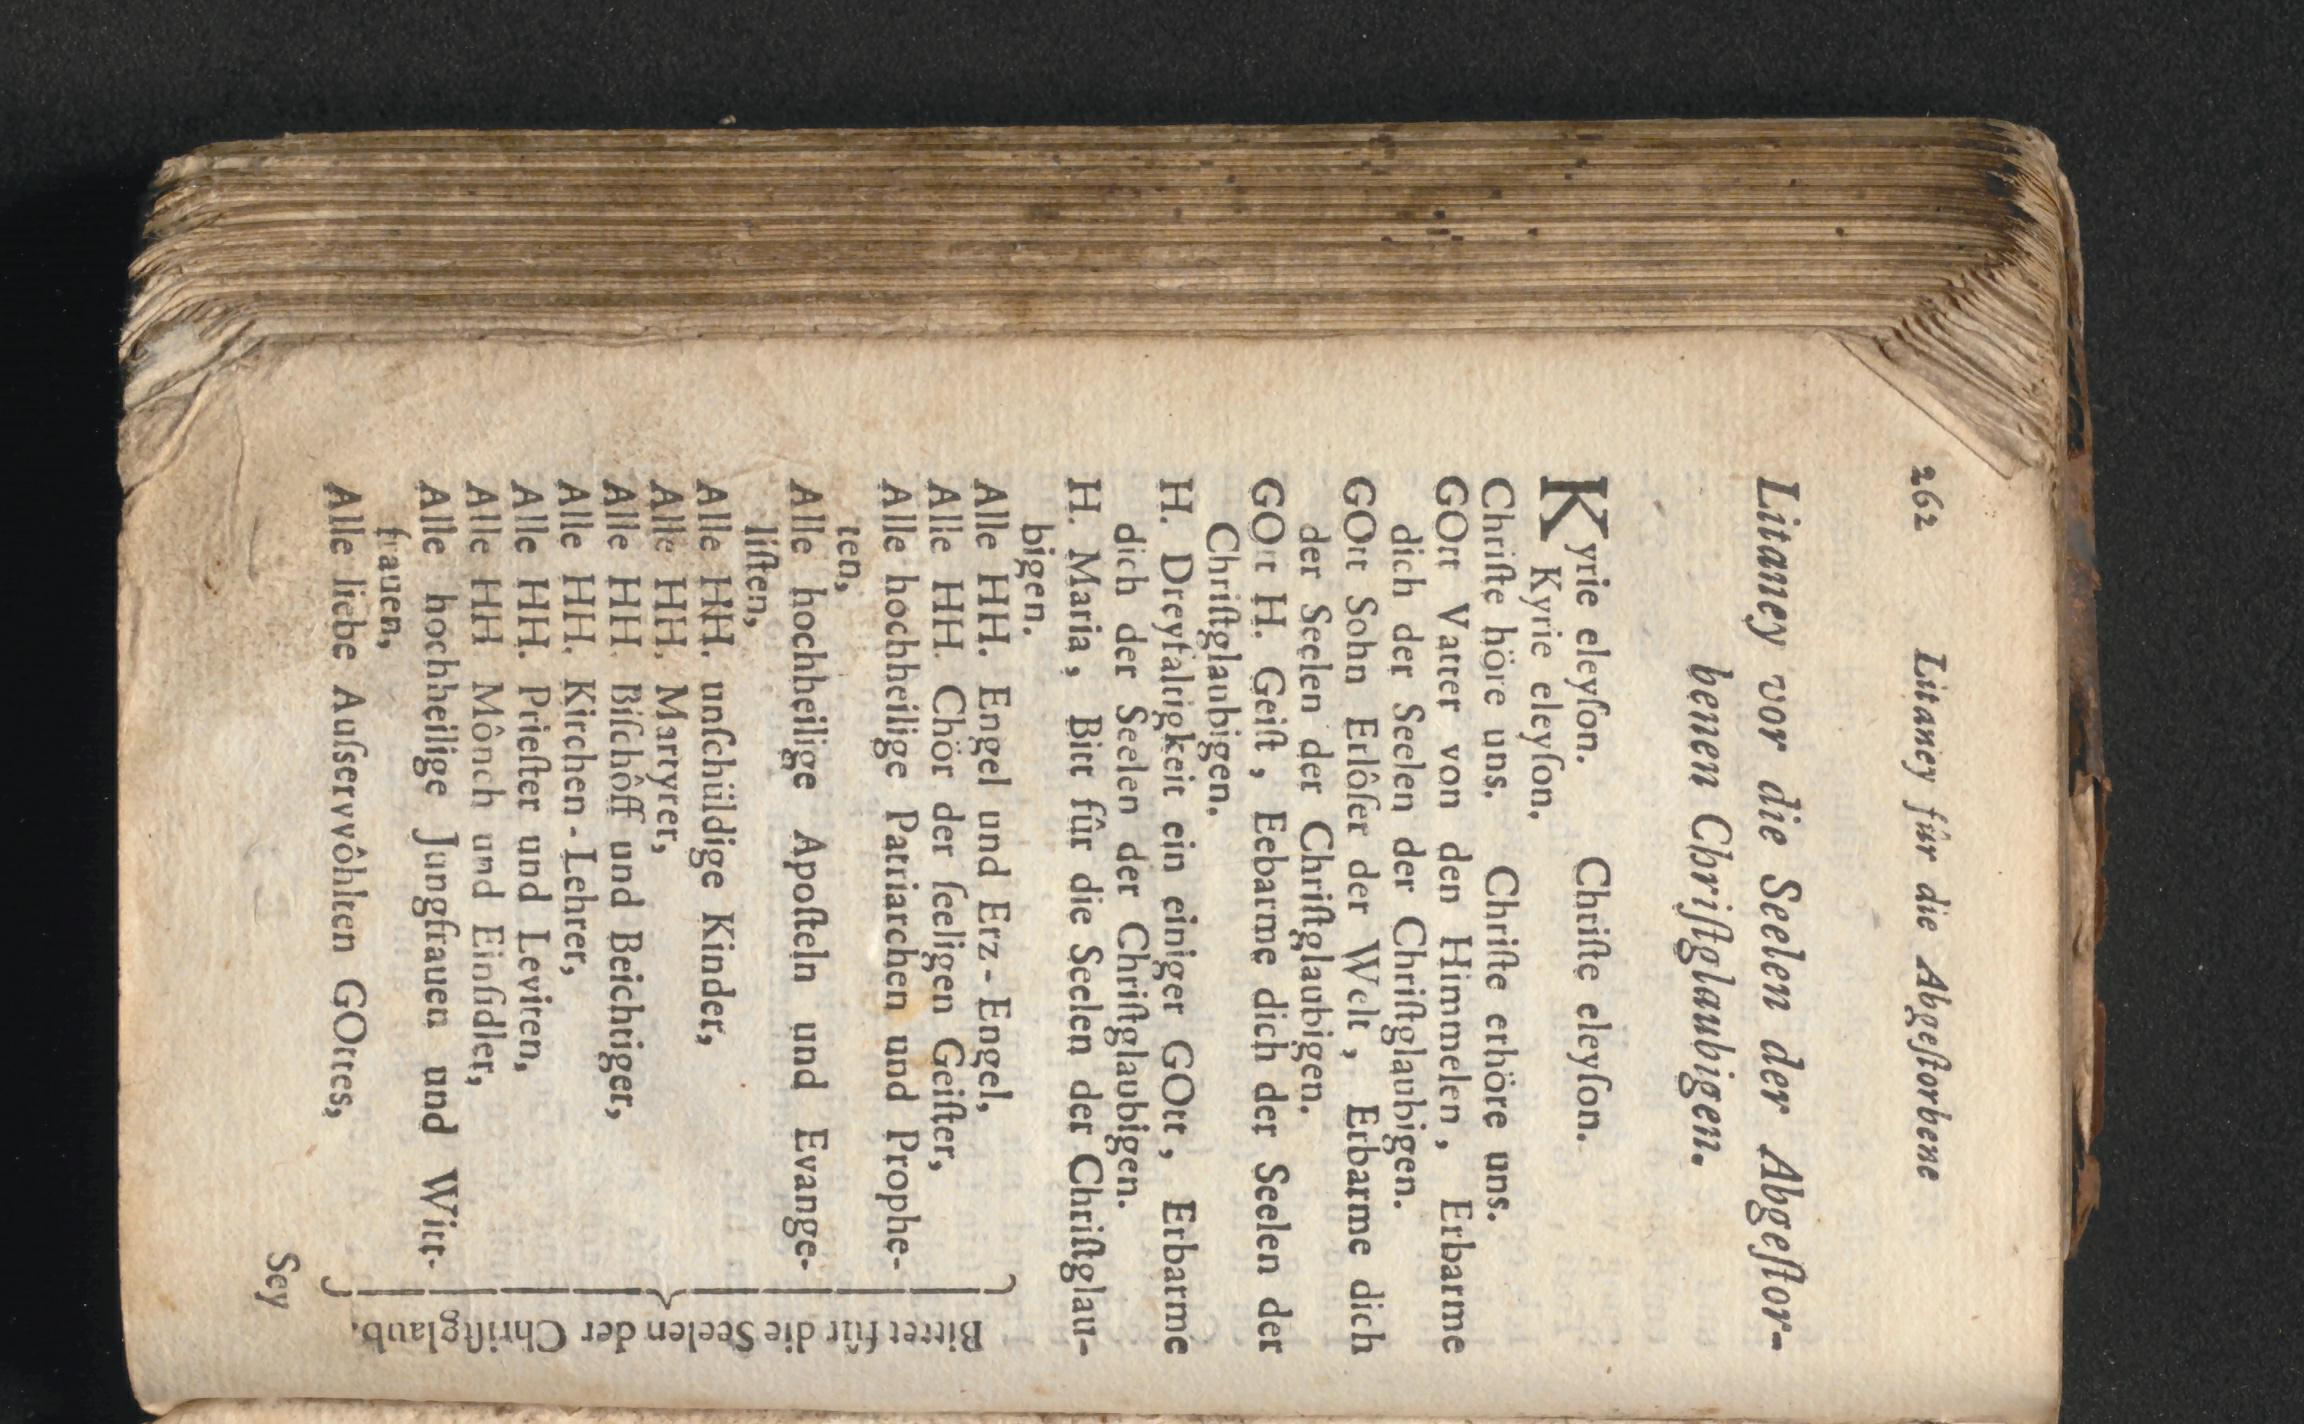 262 Litaney fûr die Abgeſtorbene
Litaney vor die Seelen der Abgeſtor-
benen Chriſtglaubigen.
Kyrie eleyſon. Chriſte eleyſon.
Kyrie eleyſon.
Chriſte höre uns. Chriſte erhöre uns.
GOtt Vatter von den Himmelen, Erbarme
dich der Seelen der Chriſtglaubigen.
GOtt Sohn Erlôſer der Welt, Erbarme dich
der Seelen der Chriſtglaubigen.
GOtt H. Geiſt, Eebarme dich der Seelen der
Chriſtglaubigen.
H. Dreyfaltigkeit ein einiger GOtt, Erbarme
dich der Seelen der Chriſtglaubigen.
H. Maria, Bitt fûr die Seelen der Chriſtglau-
bigen.
Alle HH. Engel und Erz-Engel,
Alle HH. Chör der ſeeligen Geiſter,
Alle hochheilige Patriarchen und Prophe-
ten,
Alle hochheilige Apoſteln und Evange-
liſten,
Alle HH. unſchüldige Kinder,
Alle HH. Martyrer,
Alle HH. Biſchôff und Beichtiger,
Alle HH. Kirchen-Lehrer,
Alle HH. Prieſter und Leviten,
Alle HH Mônch und Einſidler,
Alle hochheilige Jungfrauen und Witt-
frauen,
Alle liebe Auſservvôhlten GOttes,
Bittet fûr die Seelen der Chriſtglaub.
Sey